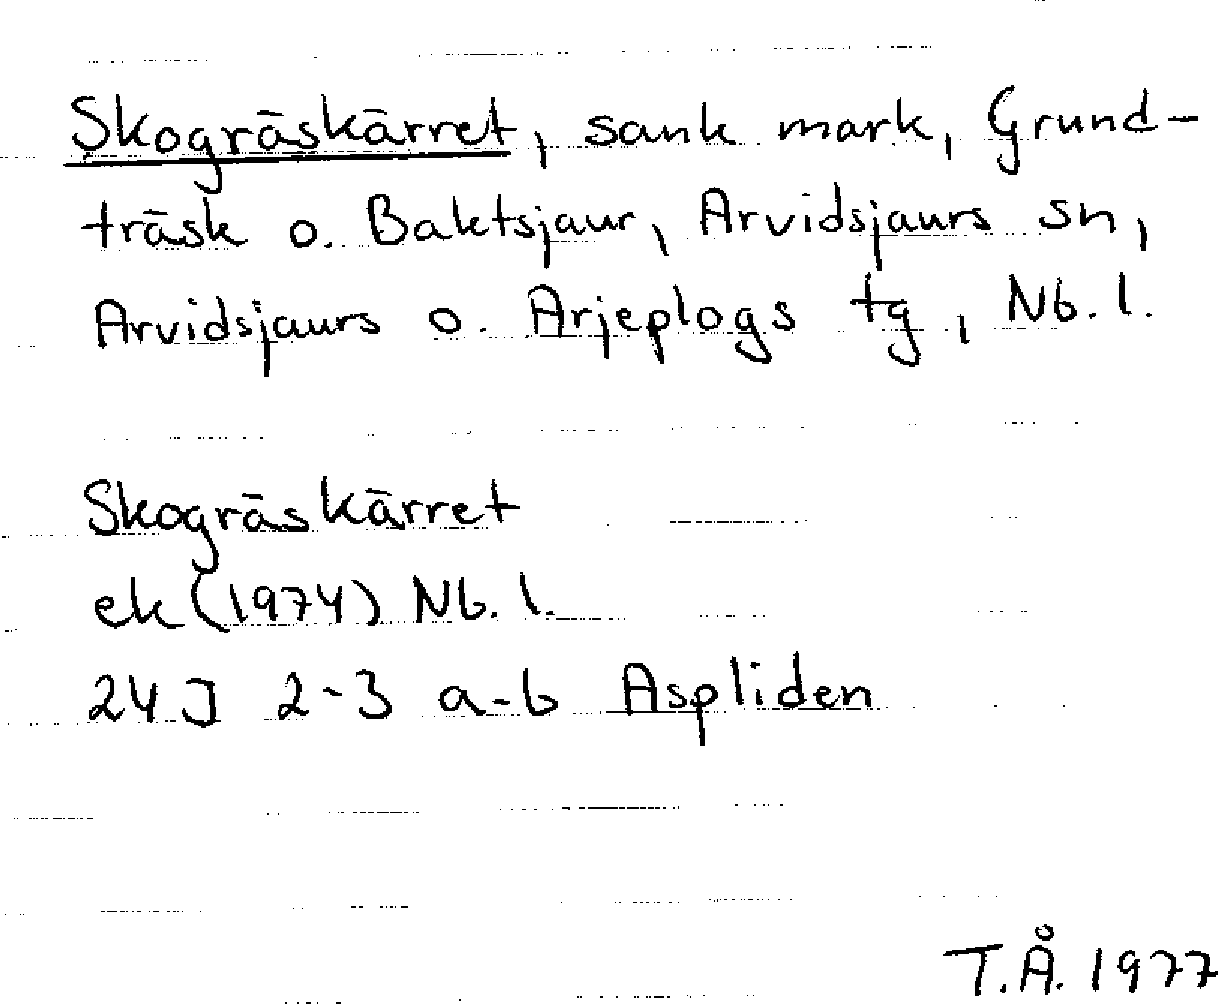 Skogräskärret, sank mark, Grund-
träsk o. Baktsjaur, Arvidsjaurs sn,
Arvidsjaurs o. Arjeplogs tg, Nb. l.
Skogräskärret
ek (1974) Nb. l.
24 J 2-3 a-b Aspliden
T.Å. 1977